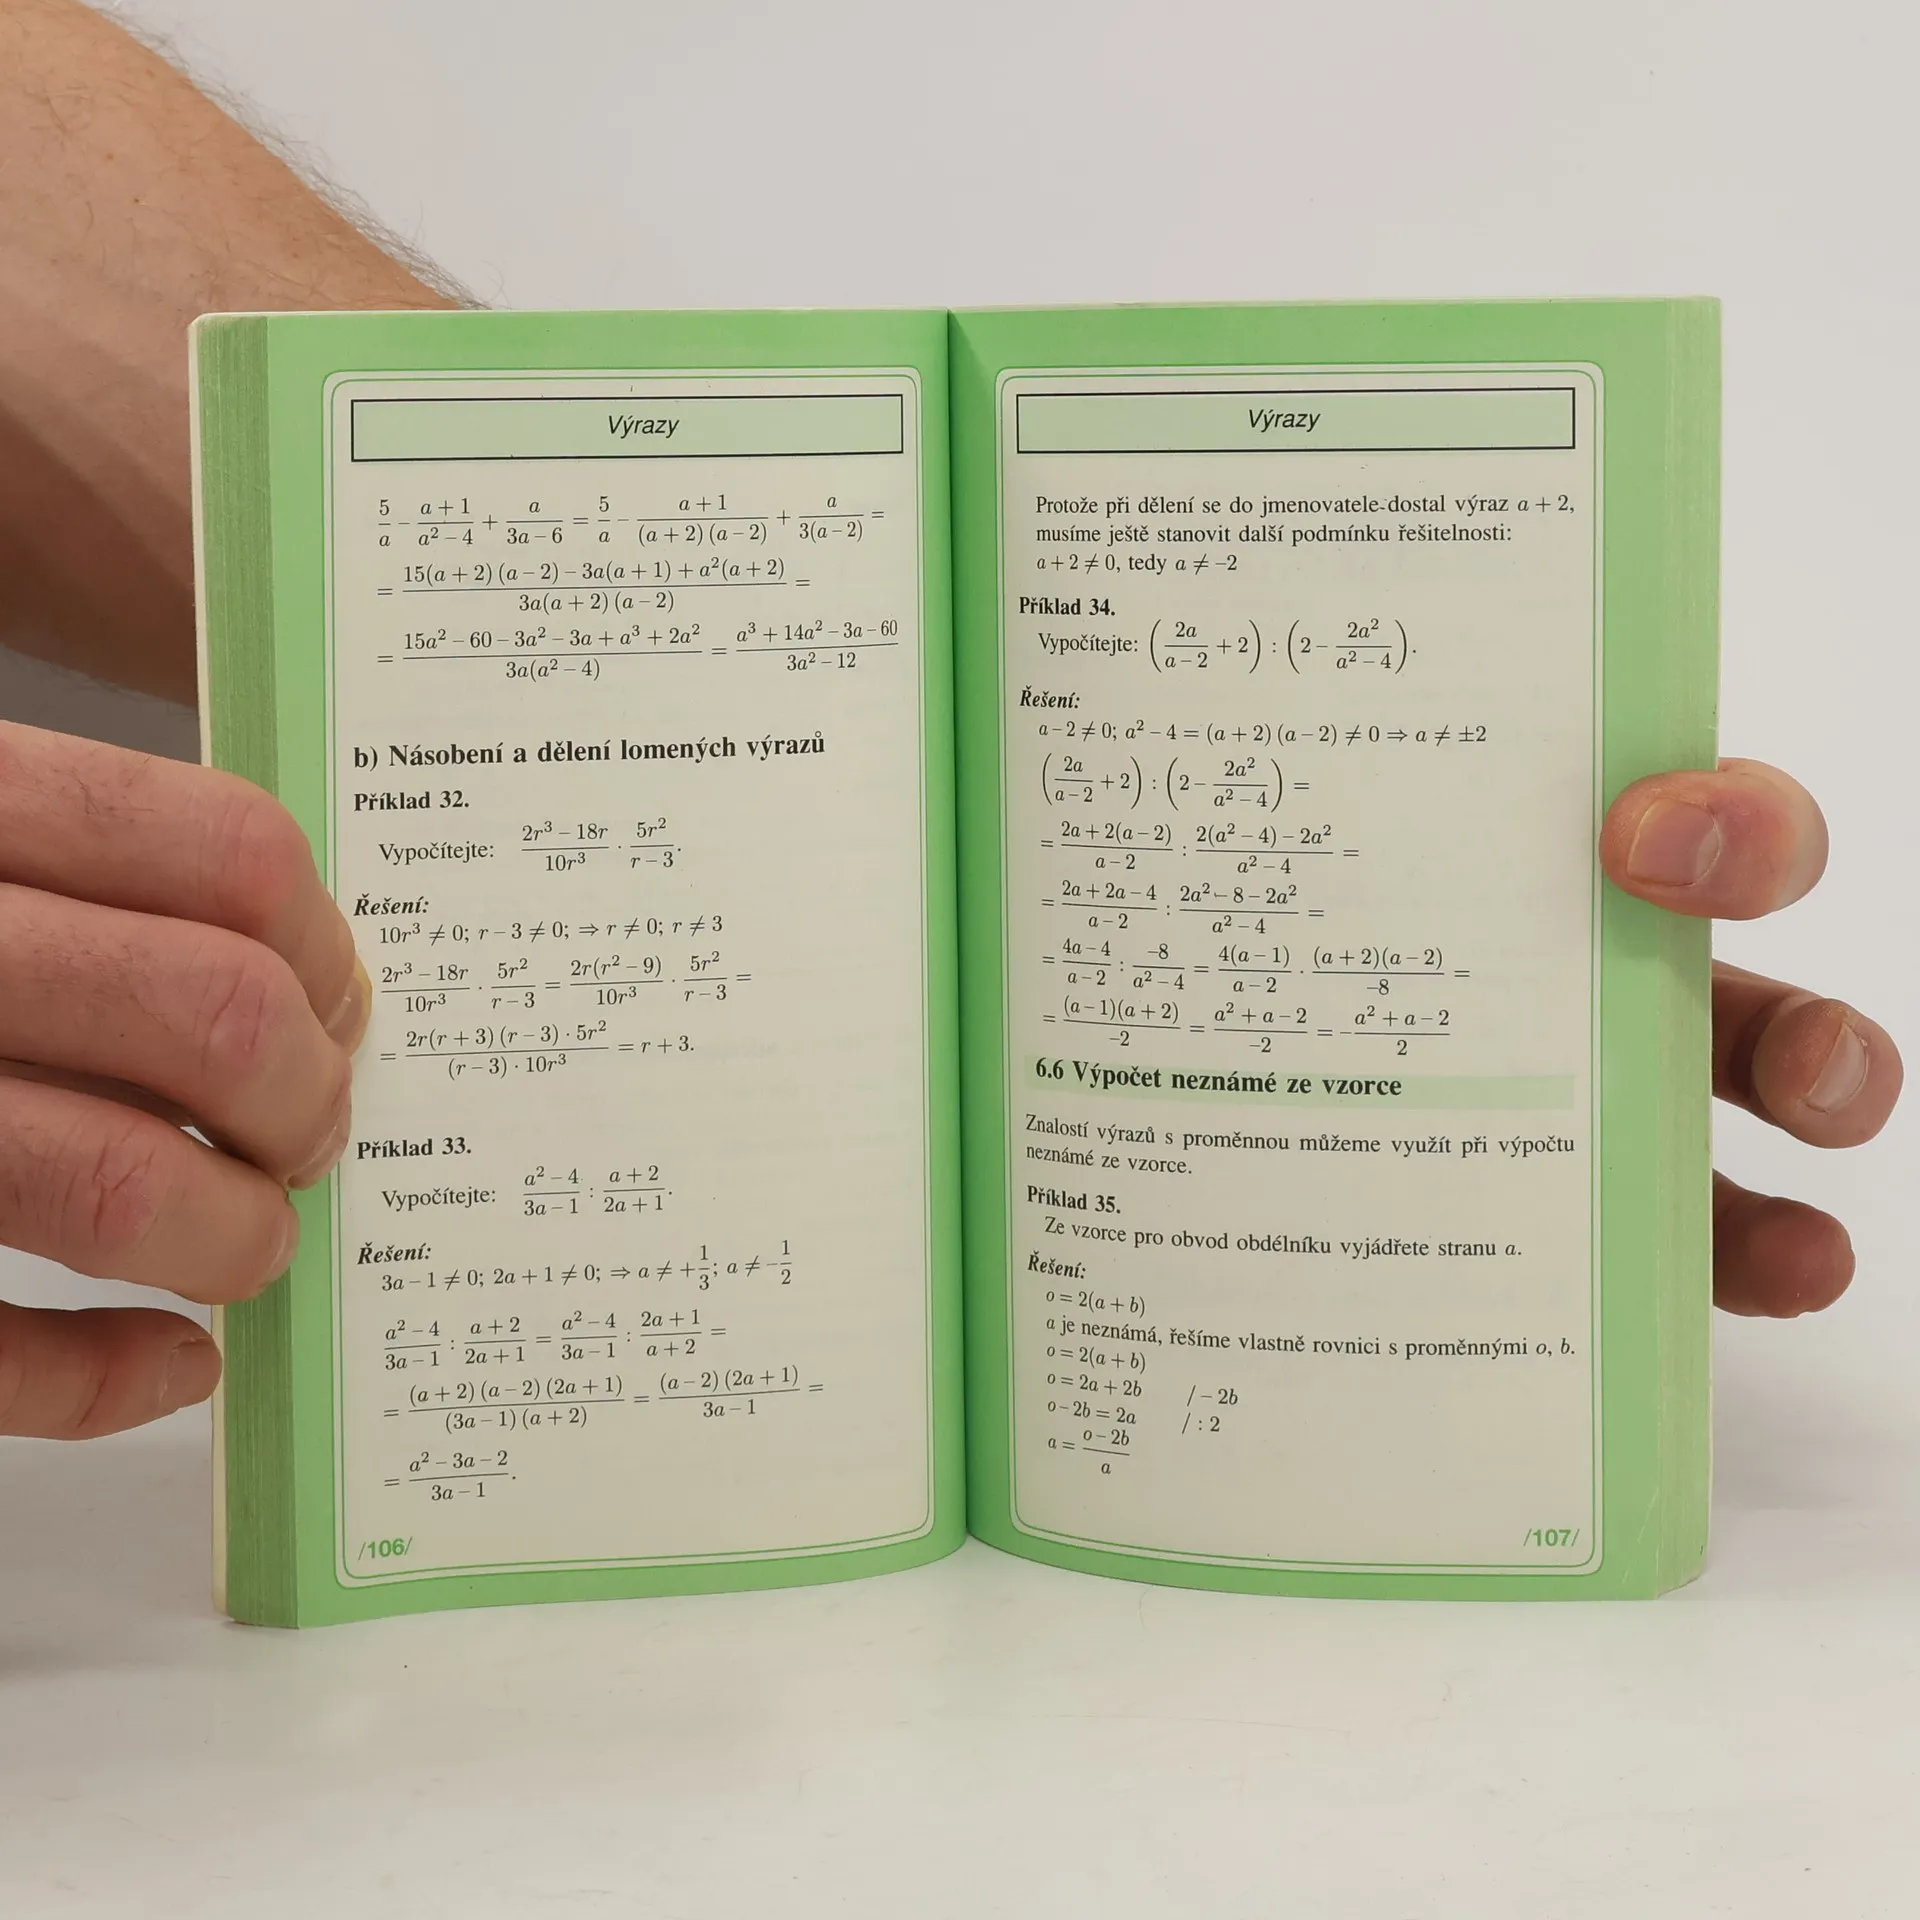 Výrazy
5/a − (a + 1)/(a² − 4) + a/(3a − 6) = 5/a − (a + 1)/((a + 2) (a − 2)) + a/(3(a − 2)) =
= (15(a + 2) (a − 2) − 3a(a + 1) + a²(a + 2))/(3a(a + 2) (a − 2)) =
= (15a² − 60 − 3a² − 3a + a³ + 2a²)/(3a(a² − 4)) = (a³ + 14a² − 3a − 60)/(3a² − 12)
b) Násobení a dělení lomených výrazů
Příklad 32.
Vypočítejte: (2r³ − 18r)/(10r³) · (5r²)/(r − 3).
Řešení:
10r³ ≠ 0; r − 3 ≠ 0; ⇒ r ≠ 0; r ≠ 3
(2r³ − 18r)/(10r³) · (5r²)/(r − 3) = (2r(r² − 9))/(10r³) · (5r²)/(r − 3) =
= (2r(r + 3) (r − 3) · 5r²)/((r − 3) · 10r³) = r + 3.
Příklad 33.
Vypočítejte: (a² − 4)/(3a − 1) : (a + 2)/(2a + 1).
Řešení:
3a − 1 ≠ 0; 2a + 1 ≠ 0; ⇒ a ≠ +1/3; a ≠ −1/2
(a² − 4)/(3a − 1) : (a + 2)/(2a + 1) = (a² − 4)/(3a − 1) : (2a + 1)/(a + 2) =
= ((a + 2) (a − 2) (2a + 1))/((3a − 1) (a + 2)) = ((a − 2) (2a + 1))/(3a − 1) =
= (a² − 3a − 2)/(3a − 1).
/106/
Výrazy
Protože při dělení se do jmenovatele dostal výraz a + 2,
musíme ještě stanovit další podmínku řešitelnosti:
a + 2 ≠ 0, tedy a ≠ −2
Příklad 34.
Vypočítejte: (2a/(a − 2) + 2) : (2 − 2a²/(a² − 4)).
Řešení:
a − 2 ≠ 0; a² − 4 = (a + 2) (a − 2) ≠ 0 ⇒ a ≠ ±2
(2a/(a − 2) + 2) : (2 − 2a²/(a² − 4)) =
= (2a + 2(a − 2))/(a − 2) : (2(a² − 4) − 2a²)/(a² − 4) =
= (2a + 2a − 4)/(a − 2) : (2a² − 8 − 2a²)/(a² − 4) =
= (4a − 4)/(a − 2) : −8/(a² − 4) = (4(a − 1))/(a − 2) · ((a + 2)(a − 2))/−8 =
= ((a − 1)(a + 2))/−2 = (a² + a − 2)/−2 = −(a² + a − 2)/2
6.6 Výpočet neznámé ze vzorce
Znalostí výrazů s proměnnou můžeme využít při výpočtu
neznámé ze vzorce.
Příklad 35.
Ze vzorce pro obvod obdélníku vyjádřete stranu a.
Řešení:
o = 2(a + b)
a je neznámá, řešíme vlastně rovnici s proměnnými o, b.
o = 2(a + b)
o = 2a + 2b / − 2b
o − 2b = 2a / : 2
a = (o − 2b)/a
/107/